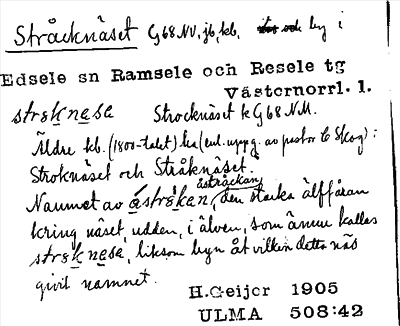 Sträcknäset G68NV, jb, kb. by i
Edsele sn Ramsele och Resele tg
Västernorrl. l.
strɛknɛsɛ Strocknäset k G68 N.M.
Äldre kb. (1800-talet) har (enl. uppg. av pastor C Skog):
Stroknäset och Stråknäset.
åsträckan
Namnet av åstrɛkɛn, den starka älffåran
kring näset, udden, i älven, som ännu kallas
strɛknɛsɛ, liksom byn åt vilken detta näs
givit namnet.
H.Geijer 1905
ULMA 508:42